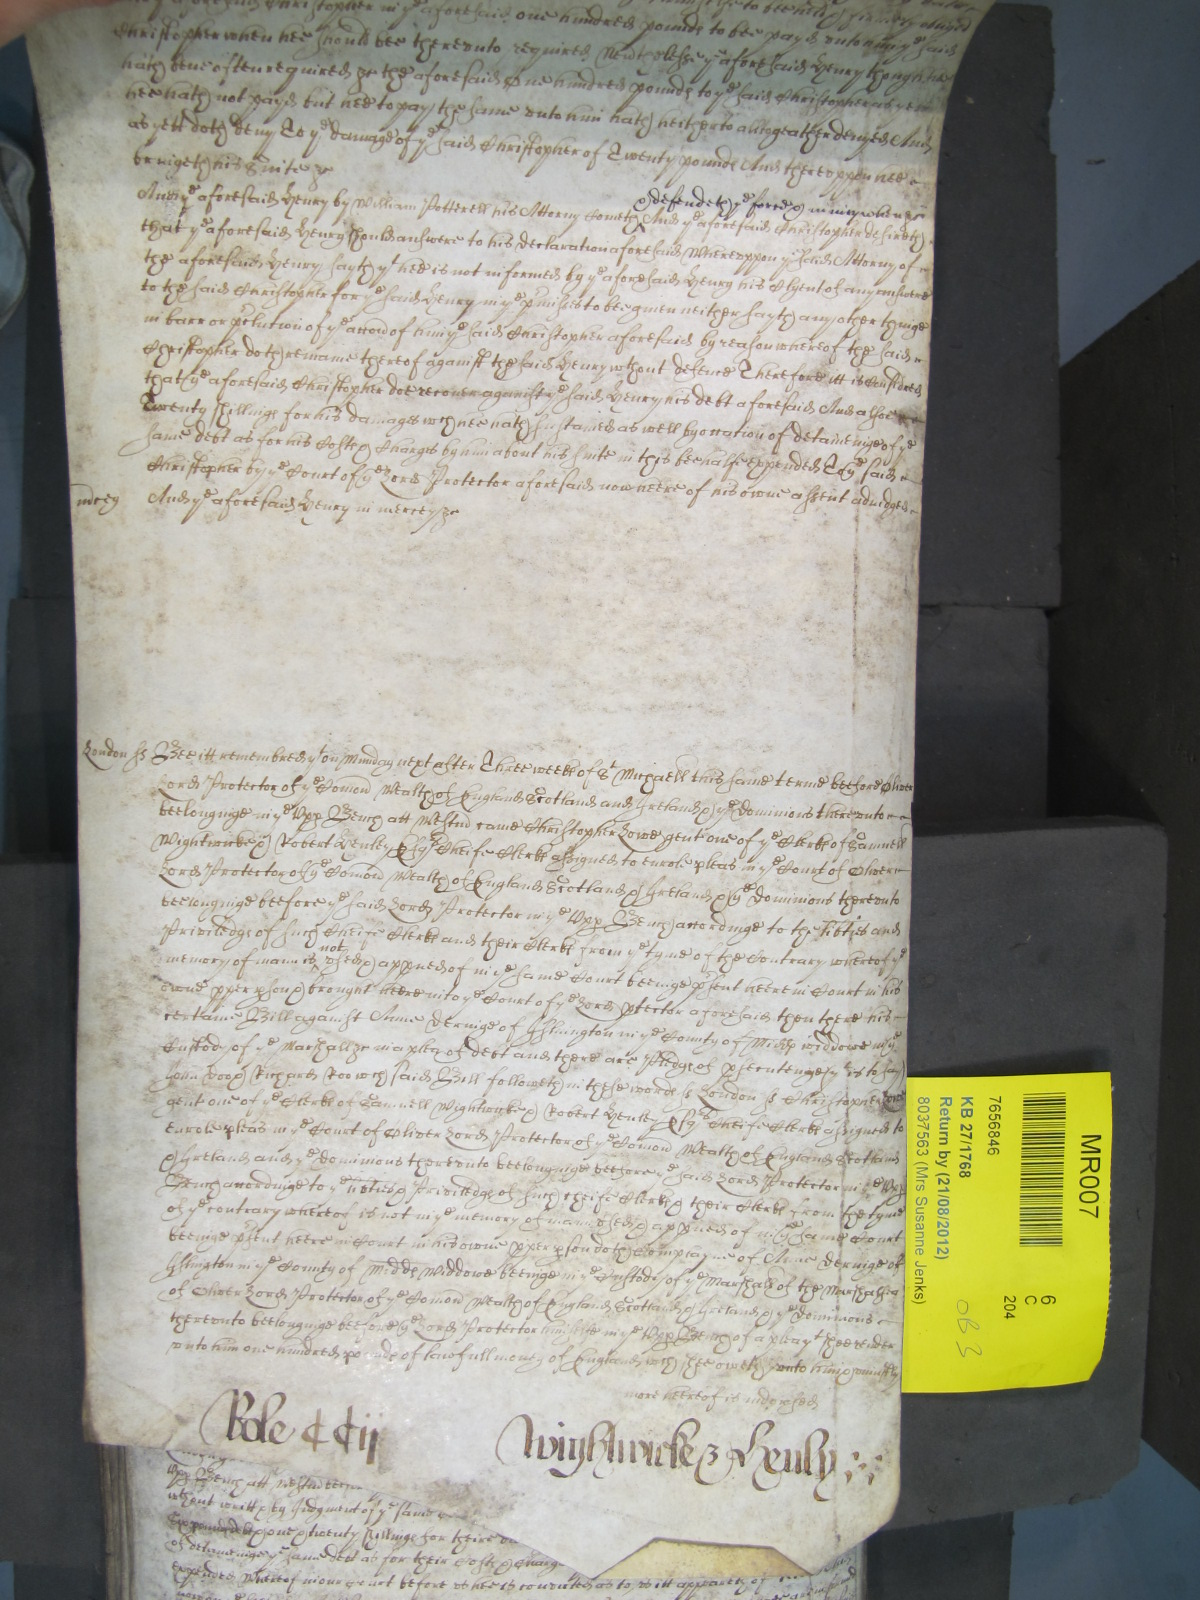 Christopher in ye aforesaid one hundred pounds to bee payd unto him ye said
Christopher when hee should bee thereunto required Neverthelesse ye aforesaid Henry though hee
hath bene often required &c the aforesaid One hundred pounds to ye said Christopher as yett
hee hath not payd but hee to pay the same unto him hath hitherto altogeather denyed And
as yett doth deny To ye damage of ye said Christopher of Twenty pounds And thereuppon hee
bringeth his Suite &c
& defendeth ye force & iniury when &c
And ye aforesaid Henry by William Potterell his Attorny Cometh And ye aforesaid Christopher desireth
that ye aforesaid Henry should answere to his declaration aforesaid Whereuppon ye said Attorny of
the aforesaid Henry sayth yt hee is not informed by ye aforesaid Henry his Clyent of any answere
to the said Christopher for ye said Henry in ye pmisses to bee given neither sayth any other thinge
in barr or pclution of ye accon of him ye said Christopher aforesaid by reason whereof the said
Christopher doth remaine thereof against the said Henry wthout defence Therefore itt is Considered
that ye aforesaid Christopher doe recover against ye said Henry his debt aforesaid And alsoe
Twenty shillings for his damages wch hee hath sustained as well by occation of deteininge of ye
same debt as for his Costs & Charges by him about his suite in this beehalfe expended To ye said
Christopher by ye Court of ye Lord Protector aforesaid now heere of his owne assent adiudged
mercy And ye aforesaid Henry in mercy &c
London ss Bee itt remembred yt on Munday next after Three weeks of St Michaell this same terme beefore Oliver
Lord Protector of ye Comon Wealth of England Scotland and Ireland & ye dominions thereunto
beelonginge in ye Upp Bench att Westmr came Christopher Lowe gent one of ye Clerks of Samuell
Wightwicke & Robert Henley Esqrs Cheife Clerks assigned to enrole pleas in ye Court of Oliver
Lord Protector of ye Comon Wealth of England Scotland & Ireland & ye dominions thereunto
beelonginge beefore ye said Lord Protector in ye Upp Bench accordinge to the libties and
Priviledgs of such Cheife Clerks and their Clerks from ye tyme of the Contrary whereof ye
memory of man is not used & appved of in ye same Court beeinge psent heere in Court in his
owne pper pson & brought heere into ye Court of ye Lord ptector aforesaid then there his
certaine Bill against Anne Deringe of Islington in ye County of Midds widdowe in ye
Custody of ye Marshall &c in a plea of debt and there are Pledgs of psecutinge yt is to say
John Doo & Richard Roo wch said Bill followeth in these words ss London ss Christopher Lowe
gent one of ye Clerks of Samuell Wightwicke & Robert Henley Esqrs Cheife Clerks assigned to
enrole pleas in ye Court of Oliver Lord Protector of ye Comon Wealth of England Scotland
& Ireland and ye dominions thereunto beelonginge beefore ye said Lord Protector in ye Upp
Bench accordinge to ye libties & Priviledgs of such cheife Clerks & their Clerks from the tyme
of ye contrary whereof is not in ye memory of man used & appved of in ye same Court
beeinge psent heere in Court in his owne pper pson doth Complayne of Anne Deringe of
Islington in ye County of Midds Widdowe beeinge in ye Custody of ye Marshall of the Marshalsea
of Oliver Lord Protector of ye Comon Wealth of England Scotland & Ireland & ye dominions
thereunto beelonginge beefore ye Lord Protector himselfe in ye Upp Bench of a plea yt shee render
unto him one hundred pounds of lawfull money of England wch shee oweth unto him &
more heereof is indorsed
Role CCij Wightwicke & Henly
Upp Bench att Westmr
wthout writt & by Judgment of ye same
& one & twenty Shillings for theire
of deteininge ye same debt as for their Costs & Charges
expended Whereof in our Court before
MR007
6
C
204
7656846
KB 27/1768
Return by (21/08/2012)
8037563 (Mrs Susanne Jenks)
OB3